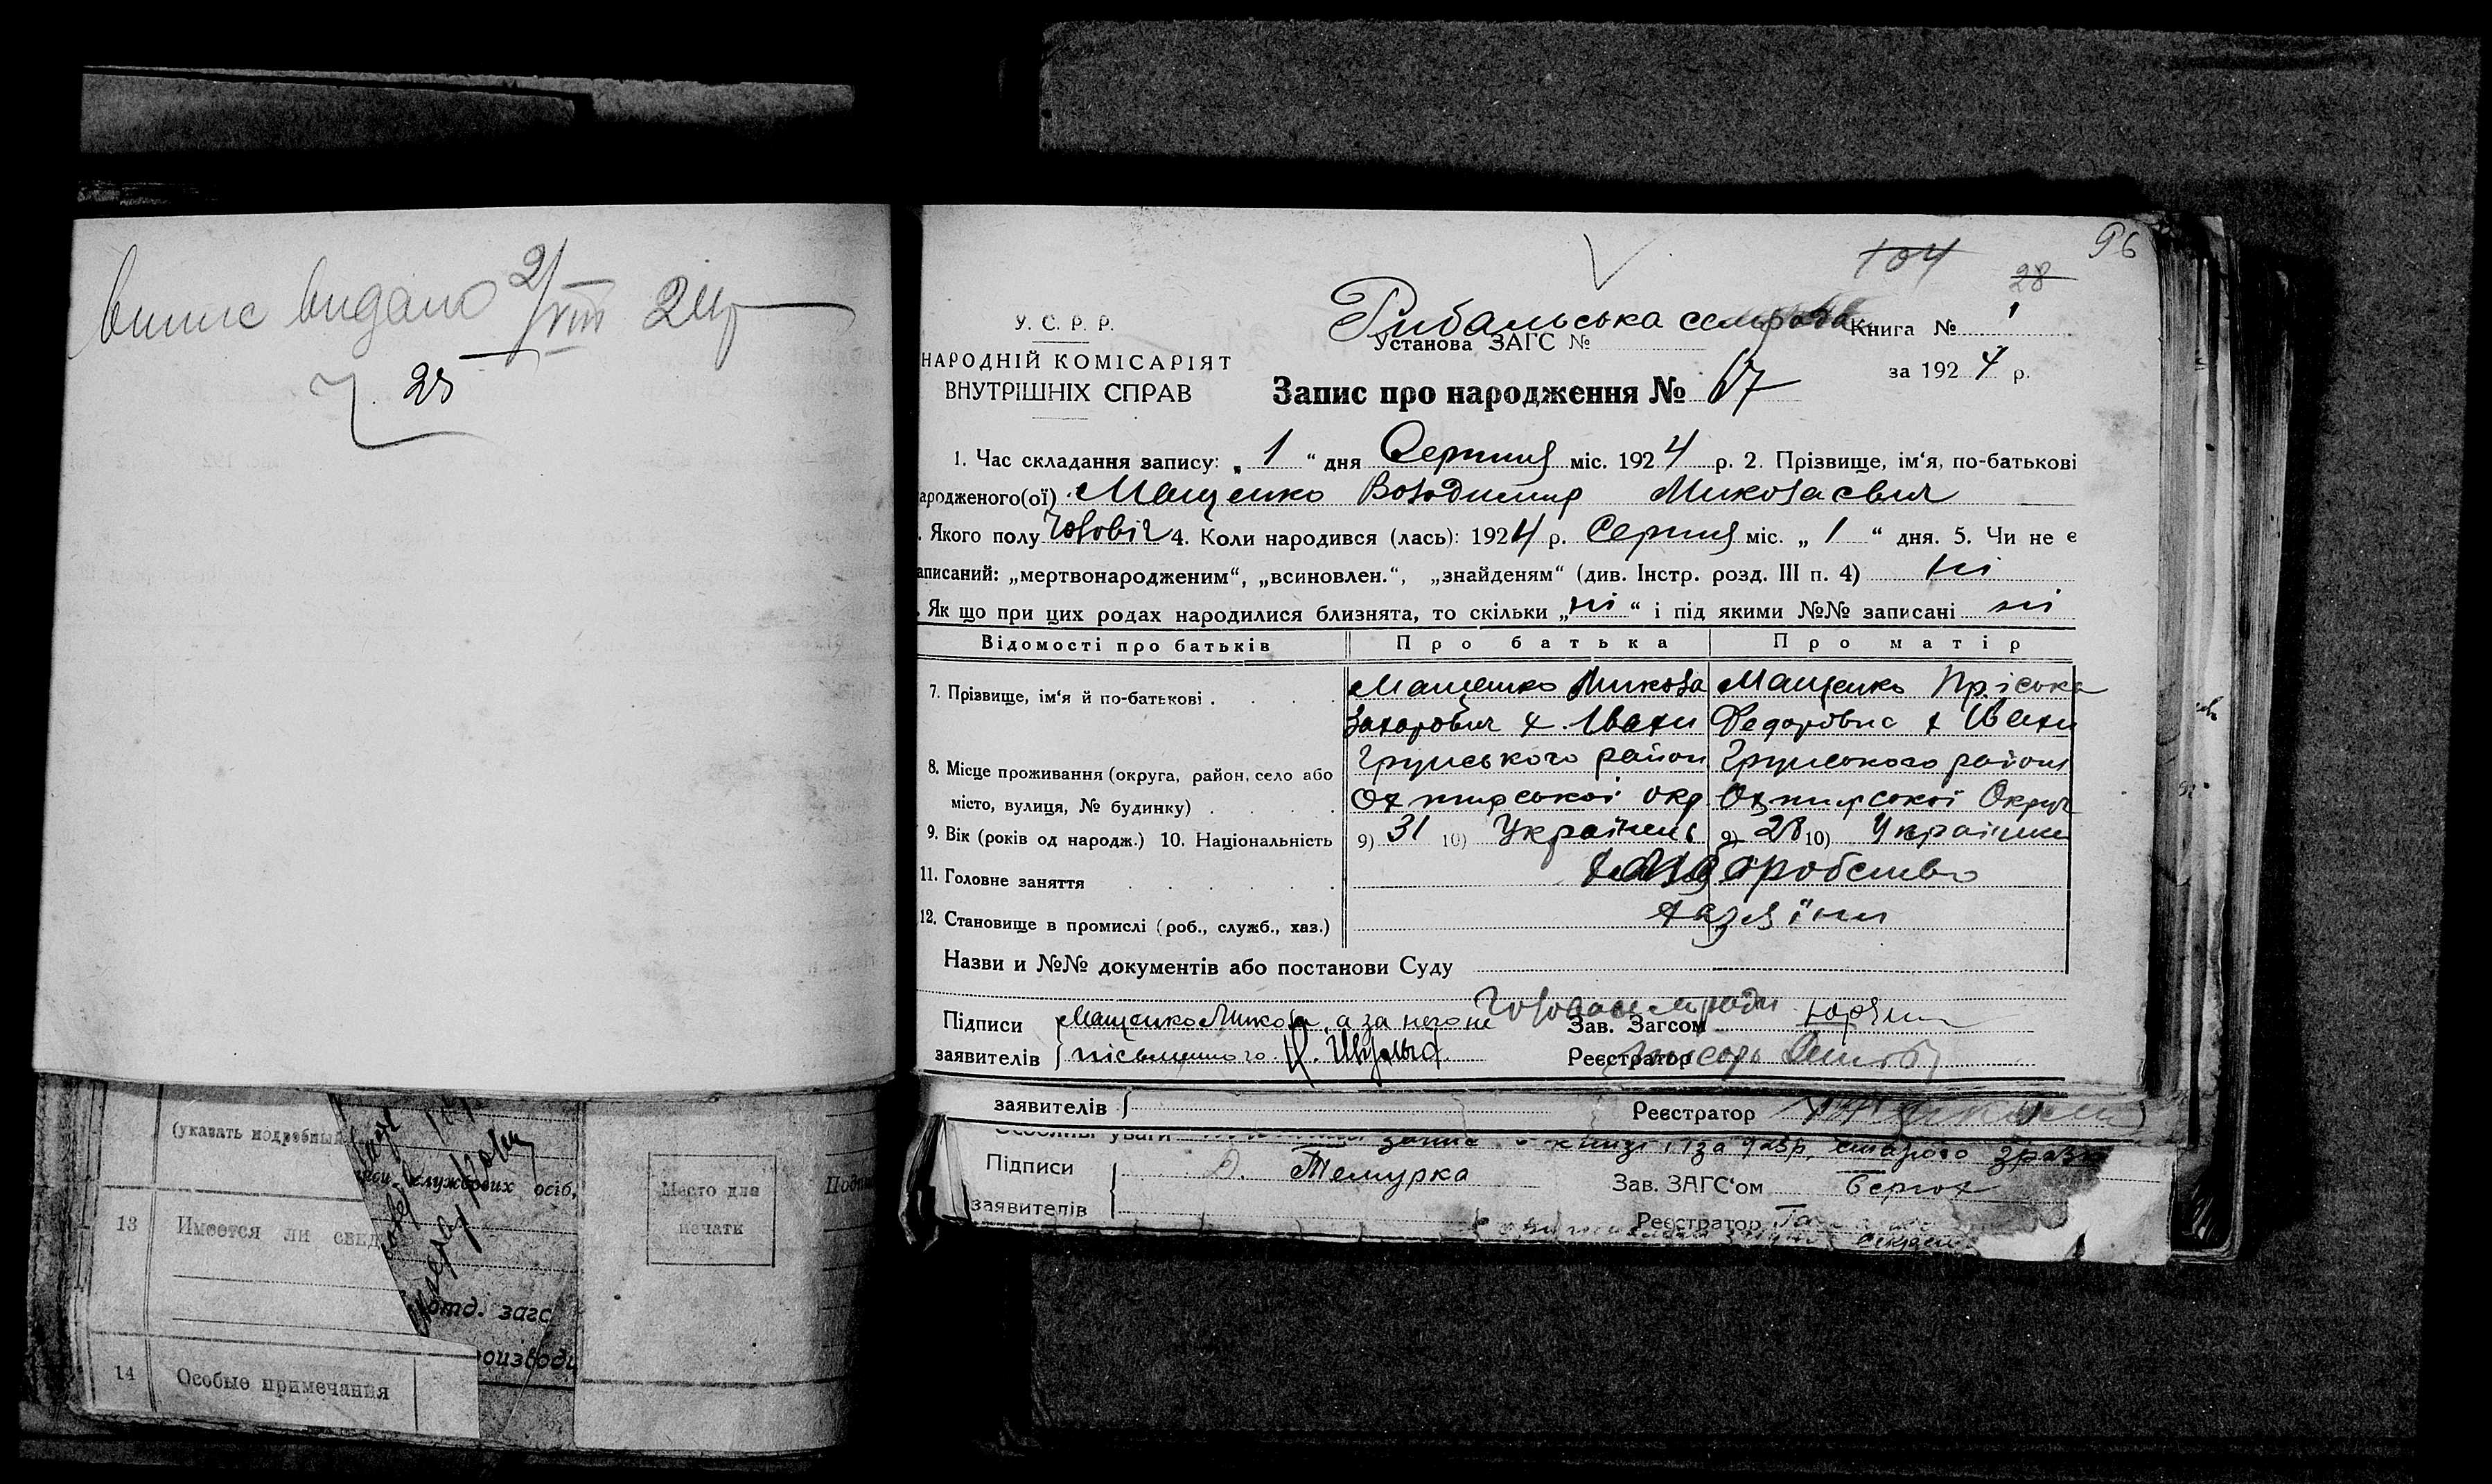 Випис видано 2/VIII 24 р
25
96
104
28
У. С. Р. Р.
НАРОДНІЙ КОМІСАРІЯТ
ВНУТРІШНІХ СПРАВ
Рибальська сельрада
Установа ЗАГС №
Книга № 1
за 1924 р.
Запис про народження № 67
1. Час складання запису: „ 1 “ дня Серпня міс. 1924 р. 2. Прізвище, ім‘я, по-батькові
ародженого(ої) Мащенко Володимир Миколаєвич
. Якого полу Чоловіч 4. Коли народився (лась): 1924 р. Серпня міс. „ 1 “ дня. 5. Чи не є
аписаний: „мертвонародженим“, „всиновлен.“, „знайденям“ (див. Інстр. розд. III п. 4) ні
. Як що при цих родах народилися близнята, то скільки „ні“ і під якими №№ записані ні
Відомості про батьків Про батька Про матір
7. Прізвище, ім‘я й по-батькові . Мащенко Микола Мащенко Пріська
Захарович х. Івахи Федоровна х Івахи
8. Місце проживання (округа, район, село або Грунського район Грунського району
місто, вулиця, № будинку) Охтирської окр Охтирської Округи
9. Вік (років од народж.) 10. Національність 9) 31 10) Українець 9) 28 10) Українка
11. Головне заняття хліборобство
12. Становище в промислі (роб., служб., хаз.) хазяїни
Назви и №№ документів або постанови Суду
Підписи Мащенко Микола, а за него не
заявителів письменного
Голова сельради
Зав. Загсом
Реєстратор
заявителів
Реєстратор
запис в книзі 1 за 9
старого
Підписи Темурка
заявителів
Зав. ЗАГС‘ом
Реєстратор
(указать подробный
служебових осіб,
13 Имеется ли свед
отд. загс
14 Особые примечания
Место для
печати